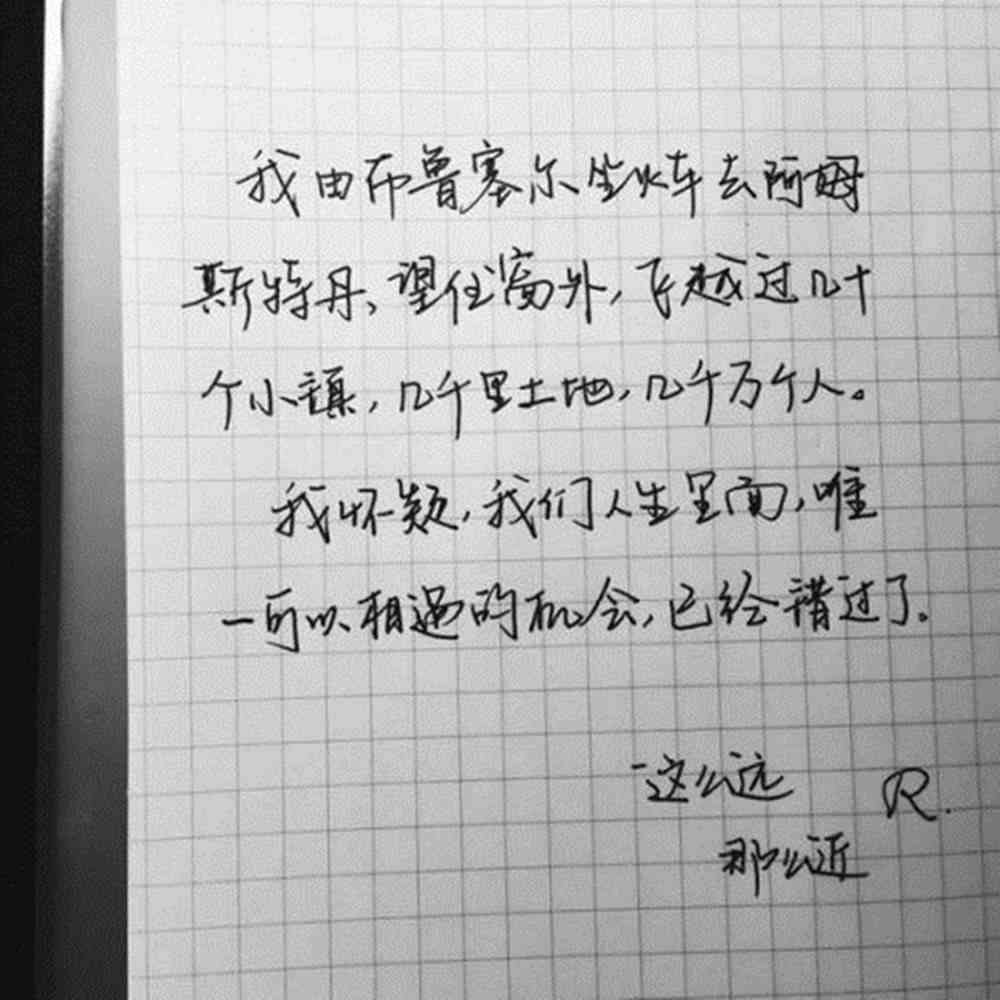 我由布鲁塞尔坐火车去阿姆
斯特丹、望住窗外,飞越过几十
个小镇,几千里土地,几千万个人。
我怀疑,我们人生里面,唯
一可以相遇的机会,已经错过了.
-这么远
那么近
R.